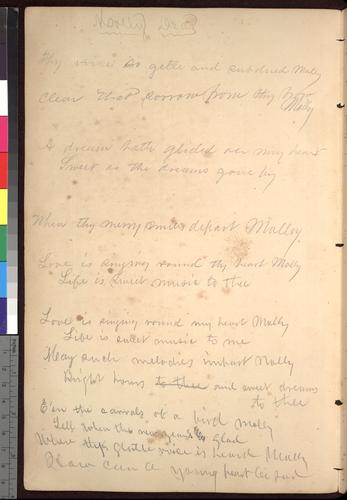 Thy voice is getle and subdued Molly
Clear that sorrow from thy brow
Molly
A dream hath glided oer my heart
Sweet as the dreams gone by
When thy merry smiles depart Molley
Love is singing round thy heart Molly
Life is sweet music to thee
Love is singing round my heart Molly
Life is sweet music to me
May such melodies impart Molly
Bright hours to thee and sweet dreams
to thee
E'en the carrols of a bird Molly
Tell when the is glad
Where thy gentle voice is heard Molly
How can a young heart be sad